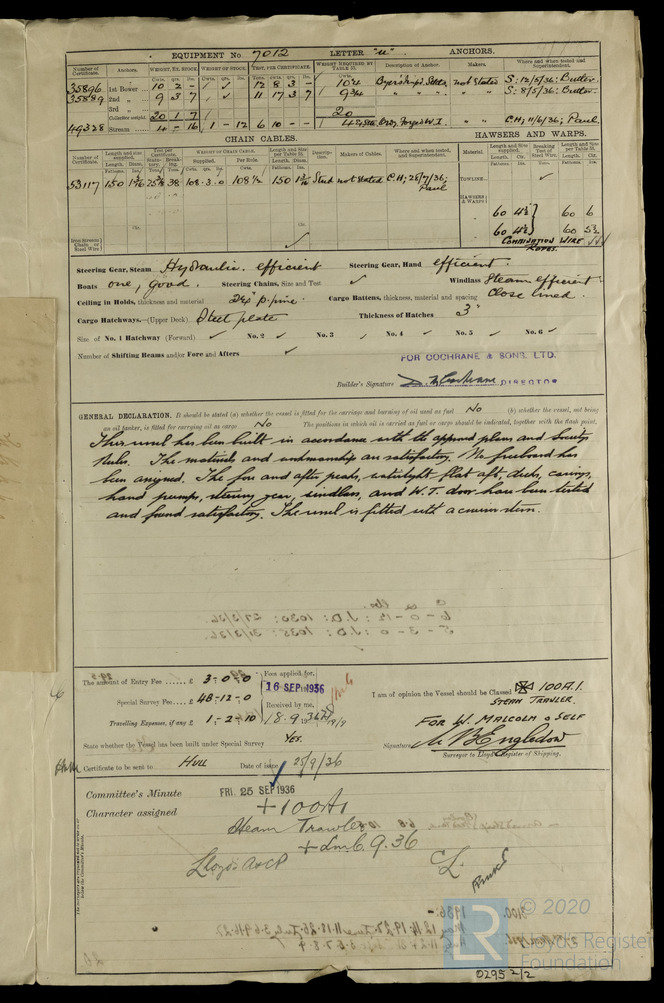 EQUIPMENT No 7012 LETTER "u" ANCHORS.
Number of Certificate. Anchors. WEIGHT, EX. STOCK. WEIGHT OF STOCK. TEST, PER CERTIFICATE. WEIGHT REQUIRED BY TABLE 31. Description of Anchor. Makers. Where and when tested and Superintendent.
35896 1st Bower 10 2 - 12 8 3 - 10¼ not stated S: 12/5/36: Butter.
35889 2nd " 9 3 7 11 17 3 7 9¾ " " S: 8/5/36: Butter.
3rd "
Collective weight. 20 1 7 20
49328 Stream 4 - 16 1 - 12 6 10 - - " " C.H; 11/6/36; Paul.
CHAIN CABLES. HAWSERS AND WARPS.
Number of Certificate. Length and size supplied. Test per Certificate. WEIGHT OF CHAIN CABLE. Length and size per Table 31. Description. Makers of Cables. Where and when tested, and Superintendent. Material. Length and size supplied. Breaking Test of Steel Wire. Length and size per Table 31.
53117 150 1 5/16 38 108.3.0 108½ 150 1 5/16 Stud not stated C.H; 28/7/36; Paul
TOWLINE
HAWSERS & WARPS
60 4½ 60 6
60 4½ 60 5½
COMBINATION WIRE ROPES.
Steering Gear, Steam Hydraulic. efficient Steering Gear, Hand efficient.
Boats one, good. Steering Chains, Size and Test Windlass Steam efficient
Ceiling in Holds, thickness and material 2½" p. pine. Cargo Battens, thickness, material and spacing Close lined.
Cargo Hatchways.—(Upper Deck) Steel plate Thickness of Hatches 3"
Size of No. 1 Hatchway (Forward) No. 2 No. 3 No. 4 No. 5 No. 6
Number of Shifting Beams and/or Fore and Afters
FOR COCHRANE & SONS. LTD.
Builder's Signature Cochrane DIRECTOR
GENERAL DECLARATION. It should be stated (a) whether the vessel is fitted for the carriage and burning of oil used as fuel No (b) whether the vessel, not being
an oil tanker, is fitted for carrying oil as cargo No The positions in which oil is carried as fuel or cargo should be indicated, together with the flash point.
This vessel has been built in accordance with the approved plans and Society's
Rules. The materials and workmanship are satisfactory. No freeboard has
been assigned. The fore and after peaks, watertight flat aft, deck, casings,
hand pumps, steering gear, windlass, and W.T. door have been tested
and found satisfactory. The vessel is fitted with a cruiser stern.
The amount of Entry Fee £ 3-0-0 Fees applied for,
16 SEP 1936
Special Survey Fee £ 48-12-0 Received by me,
Travelling Expenses, if any £ 1-2-10 18.9.1936
I am of opinion the Vessel should be Classed 100A.1.
STEAM TRAWLER.
FOR W. MALCOLM & SELF
State whether the Vessel has been built under Special Survey Yes.
Signature Engledow
Surveyor to Lloyd's Register of Shipping.
Certificate to be sent to HULL Date of issue 25/9/36
Committee's Minute FRI. 25 SEP 1936
Character assigned +100A1
Steam Trawler
+LMC 9.36
Lloyd's A&CP
© 2020
LR
Lloyd's Register
Foundation
0295 2/2